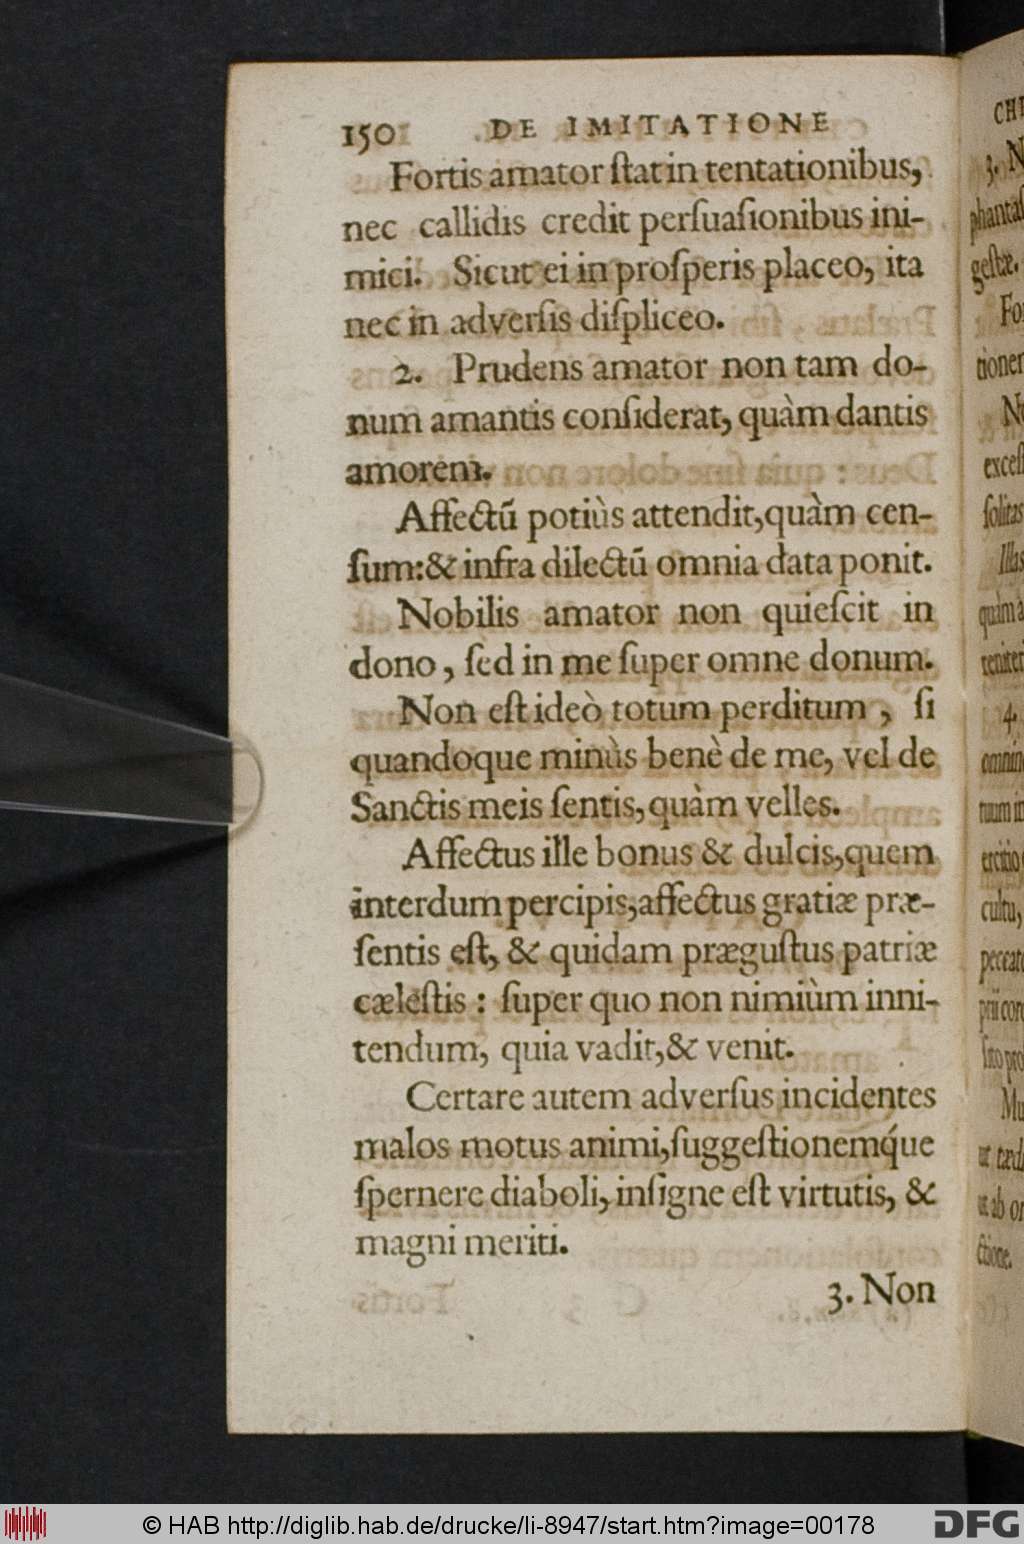 150 DE IMITATIONE
Fortis amator ſtat in tentationibus,
nec callidis credit perſuaſionibus ini-
mici. Sicut ei in proſperis placeo, ita
nec in adverſis diſpliceo.
2. Prudens amator non tam do-
num amantis conſiderat, quàm dantis
amorem.
Affectũ potiùs attendit, quàm cen-
ſum: & infra dilectũ omnia data ponit.
Nobilis amator non quieſcit in
dono, ſed in me ſuper omne donum.
Non eſt ideò totum perditum, ſi
quandoque minùs benè de me, vel de
Sanctis meis ſentis, quàm velles.
Affectus ille bonus & dulcis, quem
interdum percipis, affectus gratiæ præ-
ſentis eſt, & quidam præguſtus patriæ
cæleſtis: ſuper quo non nimiùm inni-
tendum, quia vadit, & venit.
Certare autem adverſus incidentes
malos motus animi, ſuggeſtionemq́ue
ſpernere diaboli, inſigne eſt virtutis, &
magni meriti.
3. Non
CHI
3. N
phantaſ
geſtæ.
For
tioner
exceſ
ſolitas
Illas
quàm a
reniter
4.
omnin
tuum in
ercitio
cultu,
peccato
prii cor
ſito pro
Mu
ut tædi
ut ab or
ctione.
© HAB http://diglib.hab.de/drucke/li-8947/start.htm?image=00178
DFG